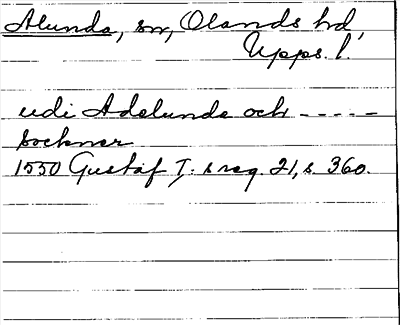 Alunda, sn, Olands hd,
Upps. l.
udi Adelunda och -----
sockner
1550 Gustaf I: s reg. 21, s. 360.